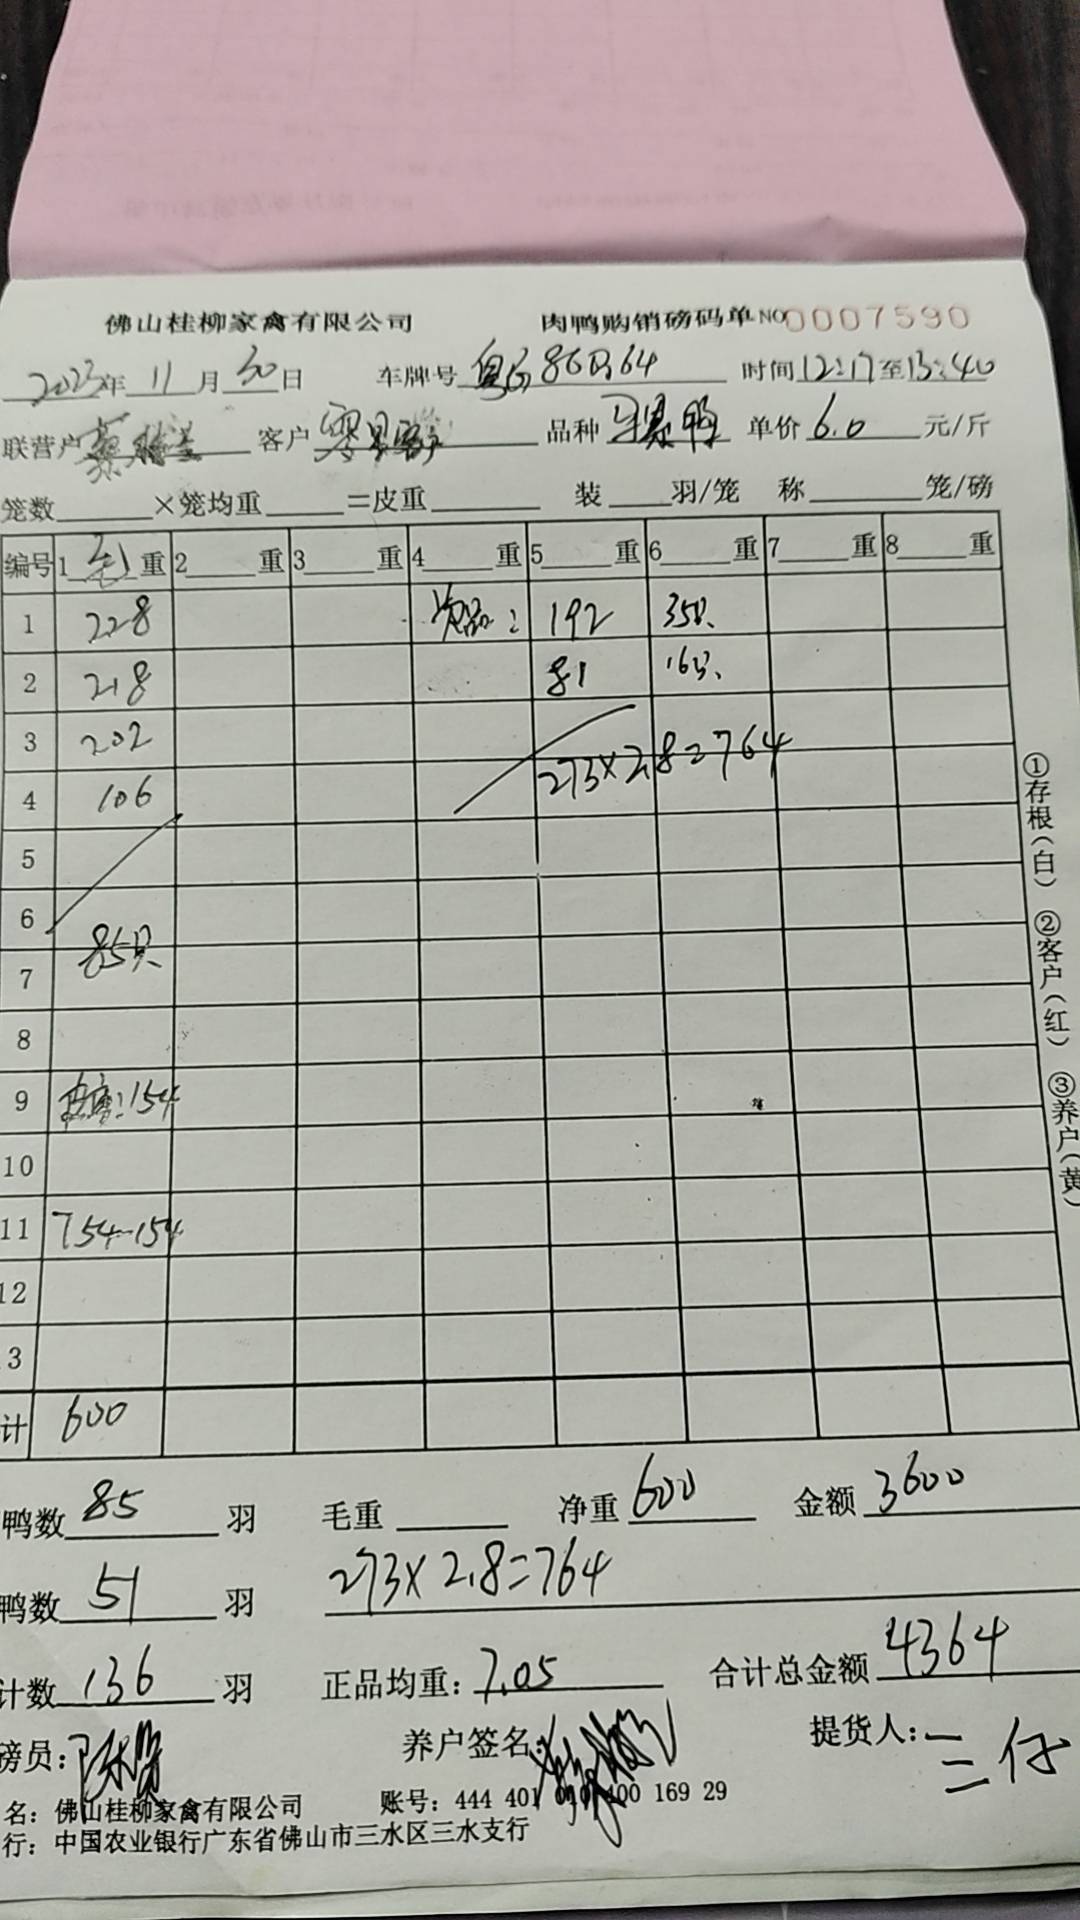 佛山桂柳家禽有限公司 肉鸭购销磅码单 NO 0007590
2023年 11 月 30 日 车牌号 时间 12:17 至 13:40
联营户 客户 零星客户 品种 单价 6.0 元/斤
笼数 ×笼均重 =皮重 装 羽/笼 称 笼/磅
编号 1 毛 重 2 重 3 重 4 重 5 重 6 重 7 重 8 重
1 228 次品: 192 35只
2 218 81 16只
3 202
273×2.8=764
4 106
5
6
85只
7
8
9 154
10
11 754-154
12
3
计 600
鸭数 85 羽 毛重 净重 600 金额 3600
鸭数 51 羽 273×2.8=764
计数 136 羽 正品均重: 7.05 合计总金额 4364
磅员: 养户签名: 提货人: 三仔
名: 佛山桂柳家禽有限公司 账号: 444 401 400 169 29
行: 中国农业银行广东省佛山市三水区三水支行
①存根(白) ②客户(红) ③养户(黄)